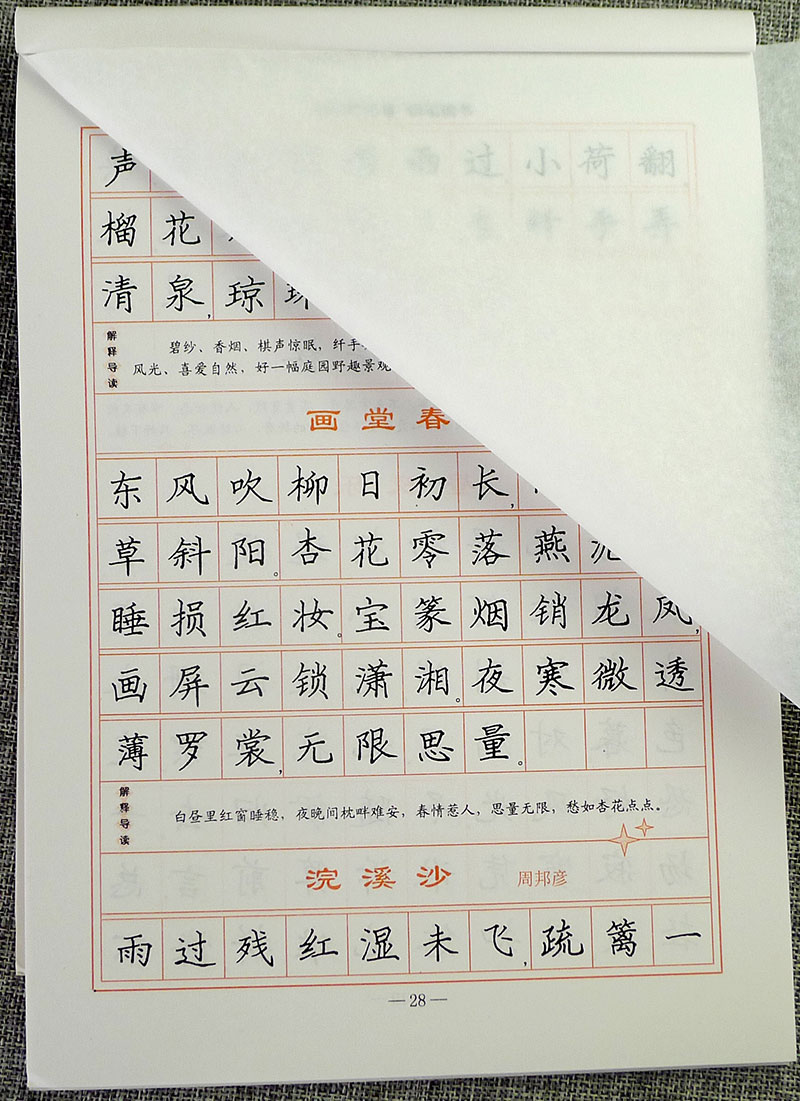 声 过小荷翻
榴花
清泉,琼珠
解释导读
碧纱、香烟、棋声惊眠,纤手
风光、喜爱自然,好一幅庭园野趣景观
画堂春
东风吹柳日初长,
草斜阳。杏花零落燕泥
睡损红妆。宝篆烟销龙凤,
画屏云锁潇湘。夜寒微透
薄罗裳,无限思量。
解释导读
白昼里红窗睡稳,夜晚间枕畔难安,春情惹人,思量无限,愁如杏花点点。
浣溪沙 周邦彦
雨过残红湿未飞,疏篱一
—28—